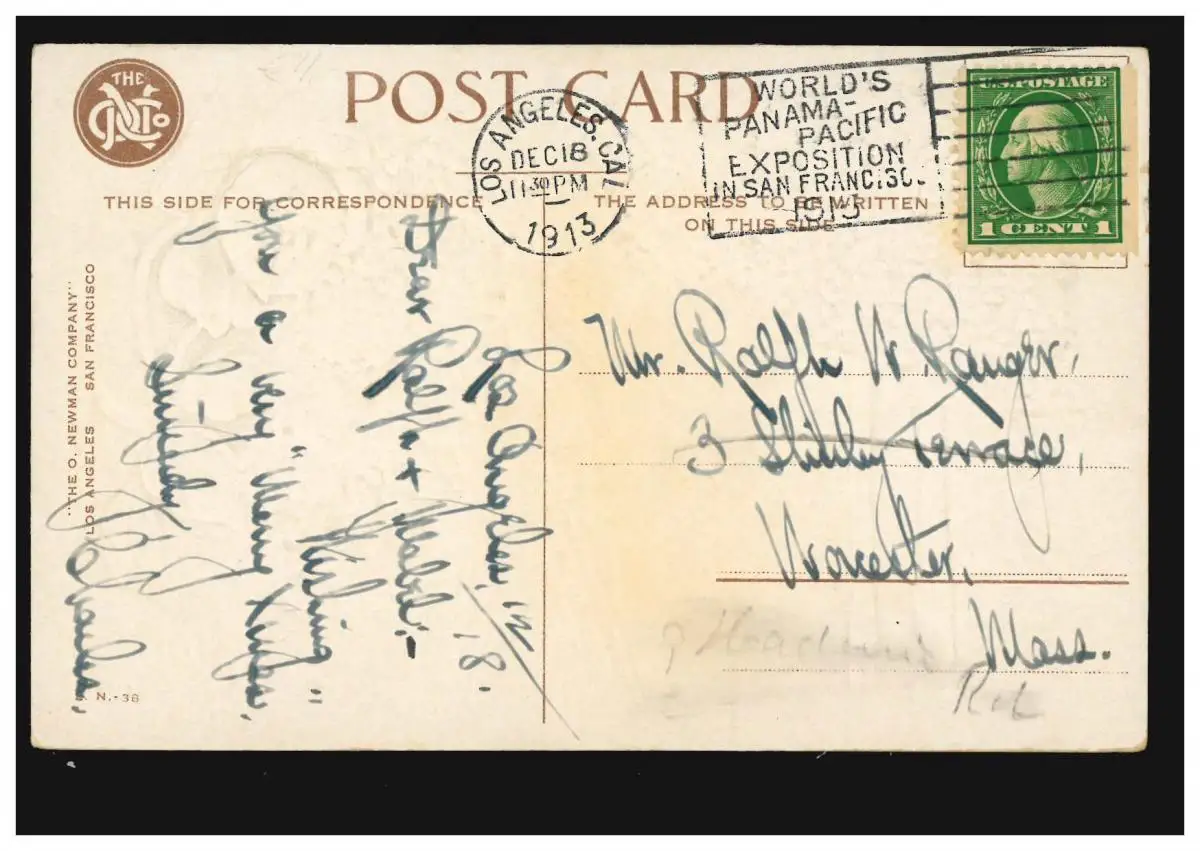 THE
N Co
POST CARD
LOS ANGELES, CAL
DEC 18
11 30 PM
1913
WORLD'S
PANAMA-
PACIFIC
EXPOSITION
IN SAN FRANCISCO
1915
U.S. POSTAGE
1 CENT 1
THIS SIDE FOR CORRESPONDENCE
THE ADDRESS TO BE WRITTEN
ON THIS SIDE
"THE O. NEWMAN COMPANY"
LOS ANGELES SAN FRANCISCO
Los Angeles, 12/18.
Dear Ralph + Mabel:-
"Wishing
You a very "Merry Xmas.
-
Sincerely
Charles.
Mr. Ralph W Ranger,
3 Shirley Terrace,
Worcester,
Mass.
N.-38